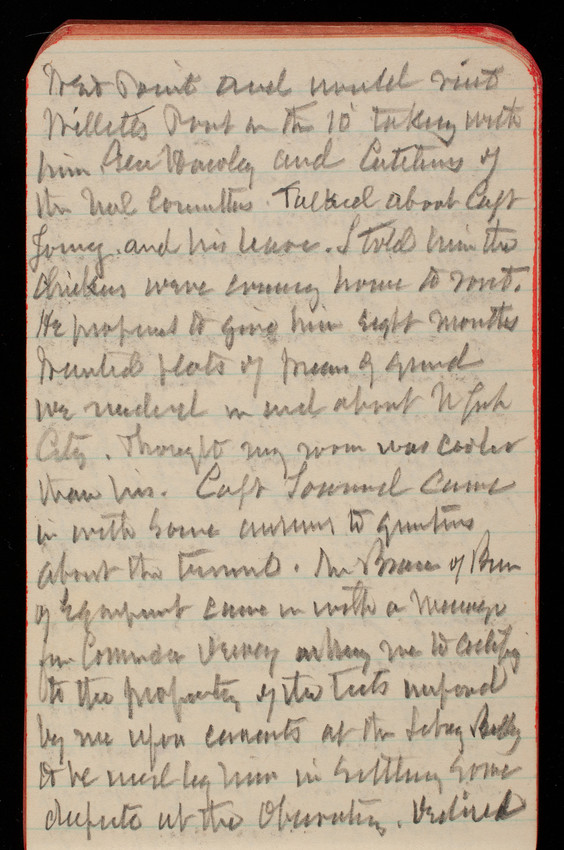 West Point and would visit
Willetts Point on the 10 taking with
him Gen Hawley and Cutcheon of
the Mil Committee. Talked about Capt
Young and his leave. I told him the
chickens were coming home to roost.
He proposes to give him eight months
Wanted plats of pieces of ground
we needed in and about N York
City. Thought my room was cooler
than his. Capt Townsend came
in with some answers to questions
about the tunnel. The Bureau
of Equipment came in with a message
from Commodore Dewey asking me to certify
to the propriety of the tests
by me upon cements at the Library Bldg
to be used by him in settling some
dispute at the Observatory. Desired